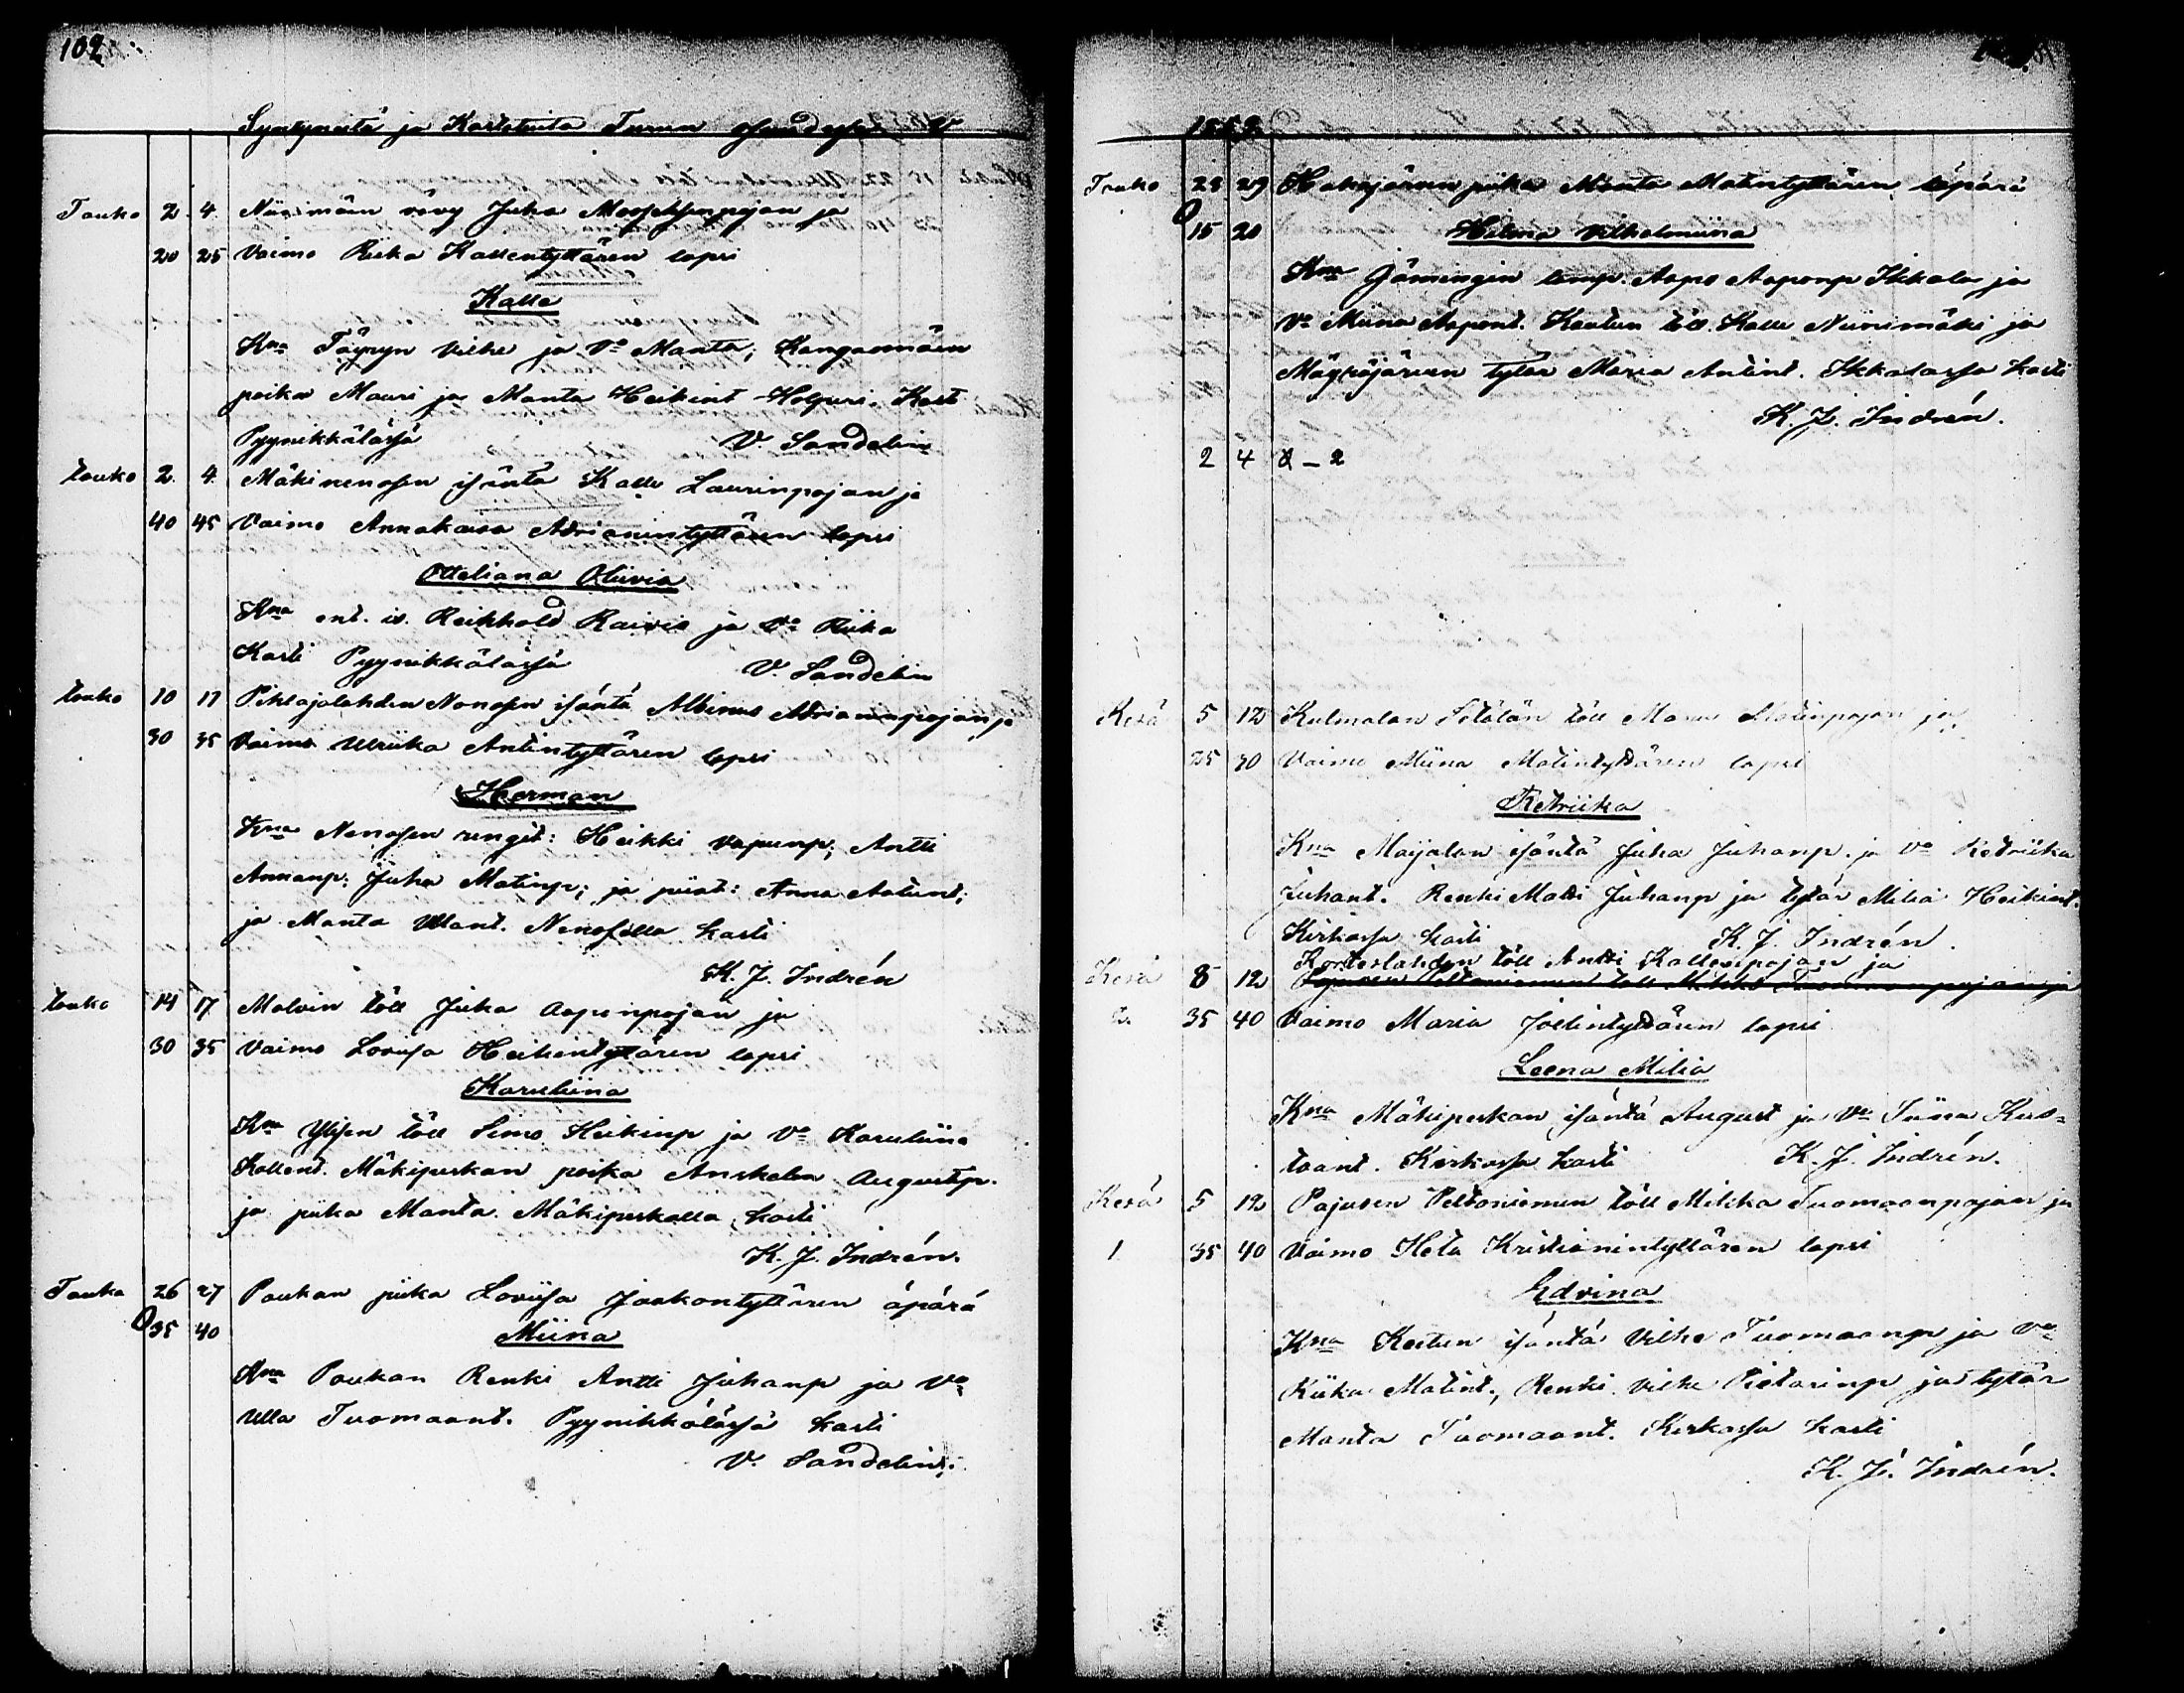 102
Syntyneitä ja Kastetuita Turun
Touko 2. 4. Niinimäen vävy Juha ja
20 25 Vaimo Riika Kallentyttären lapsi
Kalle
Kna Täyryn Vilhe ja Vo Manta, Kangasmäen
poika Mauri ja Manta Heikint Holpuri. Kast
Pyynikkälässä V. Sandelin
touko 2. 4. Mäkinenosen isäntä Kalle Laurinpojan ja
40 45 Vaimo Annakaisa Adrianintyttären lapsi
Otteliana Oliivia
Kna ent. is. Reikhold Raivio ja Vo Riika
Kasti Pyynikkälässä V. Sandelin
touko 10 17 Pihlajalahden Nenosen isäntä Albinus Adriananpojan ja
30 35 Vaimo Ulriika Antintyttären lapsi
Herman
Kna Nenosen rengit: Heikki Vapunp; Antti
Annanp; Juha Matinp; ja piiat: Anna Aatunt;
ja Manta Ullant. Nenosella kasti
K. J. Indrén
touko 14 17 Malvin töll Juha Aapenpojan ja
30 35 Vaimo Loviisa Heikintyttären lapsi
Karuliina
Kna Ylisen töll Simo Heikinp ja Vo Karuliina
Kallent. Mäkipeskan poika Anshelm Augustp.
ja piika Manta. Mäkipeskalla kasti
K. J. Indrén.
Touko 26 27 Poukan piika Loviisa Jaakontyttären äpärä
35 40 Miina
Kna Poukan Renki Antti Juhanp ja Vo
Ulla Tuomaant. Pyynikkälässä kasti
V. Sandelin.
Touko 28 29 Hakojärven piika Manta Matintyttären äpärä
15 20 Hilma Vilhelmiina
Kna Jämingin lamp. Aapo Aaponp Ikkala ja
Vo Miina Aapont. Kautun töll. Kalle Niinimäki ja
Mäyräjärven tytär Maria Antint. Ikkalassa kasti
K. J. Indrén.
2 4 2 - 2
Kesä 5 12 Kulmalan töll Mauu Matinpojan ja
25 30 Vaimo Miina Matintyttären lapsi
Retriika
Kna Maijalan isäntä Juha Juhanp. ja Vo Retriika
Juhant. Renki Matti Juhanp ja tytär Milia Heikint.
Kirkossa kasti K. J. Indrén.
Korteslahden töll Antti Kallenpojan ja
Kesä 8 12 Pajusen Peltoniemen töll Mikko Tuomaanpojan ja
2. 35 40 Vaimo Maria Joelintyttären lapsi
Leena Milia
Kna Mäkipeskan isäntä August ja Vo Siina Kus=
taant. Kirkossa kasti K. J. Indrén.
Kesä 5 12 Pajusen Peltoniemen töll Mikko Tuomaanpojan ja
1. 35 40 Vaimo Heta Kristianintyttären lapsi
Edvina
Kna Kestun isäntä Vilhe Tuomaanp ja Vo
Riika Matint., Renki Vilhe Pietarinp ja tytär
Manta Tuomaant. Kirkossa kasti
K. J. Indrén.